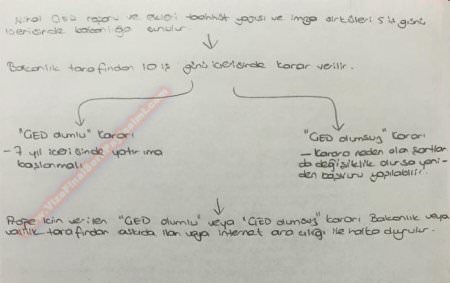 Nihai ÇED raporu ve ekleri taahhüt yazısı ve imza sirküleri 5 iş günü
içerisinde bakanlığa sunulur.
Bakanlık tarafından 10 iş günü içerisinde karar verilir.
"ÇED olumlu" kararı
- 7 yıl içerisinde yatırıma
başlanmalı
"ÇED olumsuz" kararı
- Karara neden olan şartlar
da değişiklik olursa yeni-
den başvuru yapılabilir.
Proje için verilen "ÇED olumlu" veya "ÇED olumsuz" kararı Bakanlık veya
valilik tarafından askıda ilan veya internet aracılığı ile halka duyurulur.